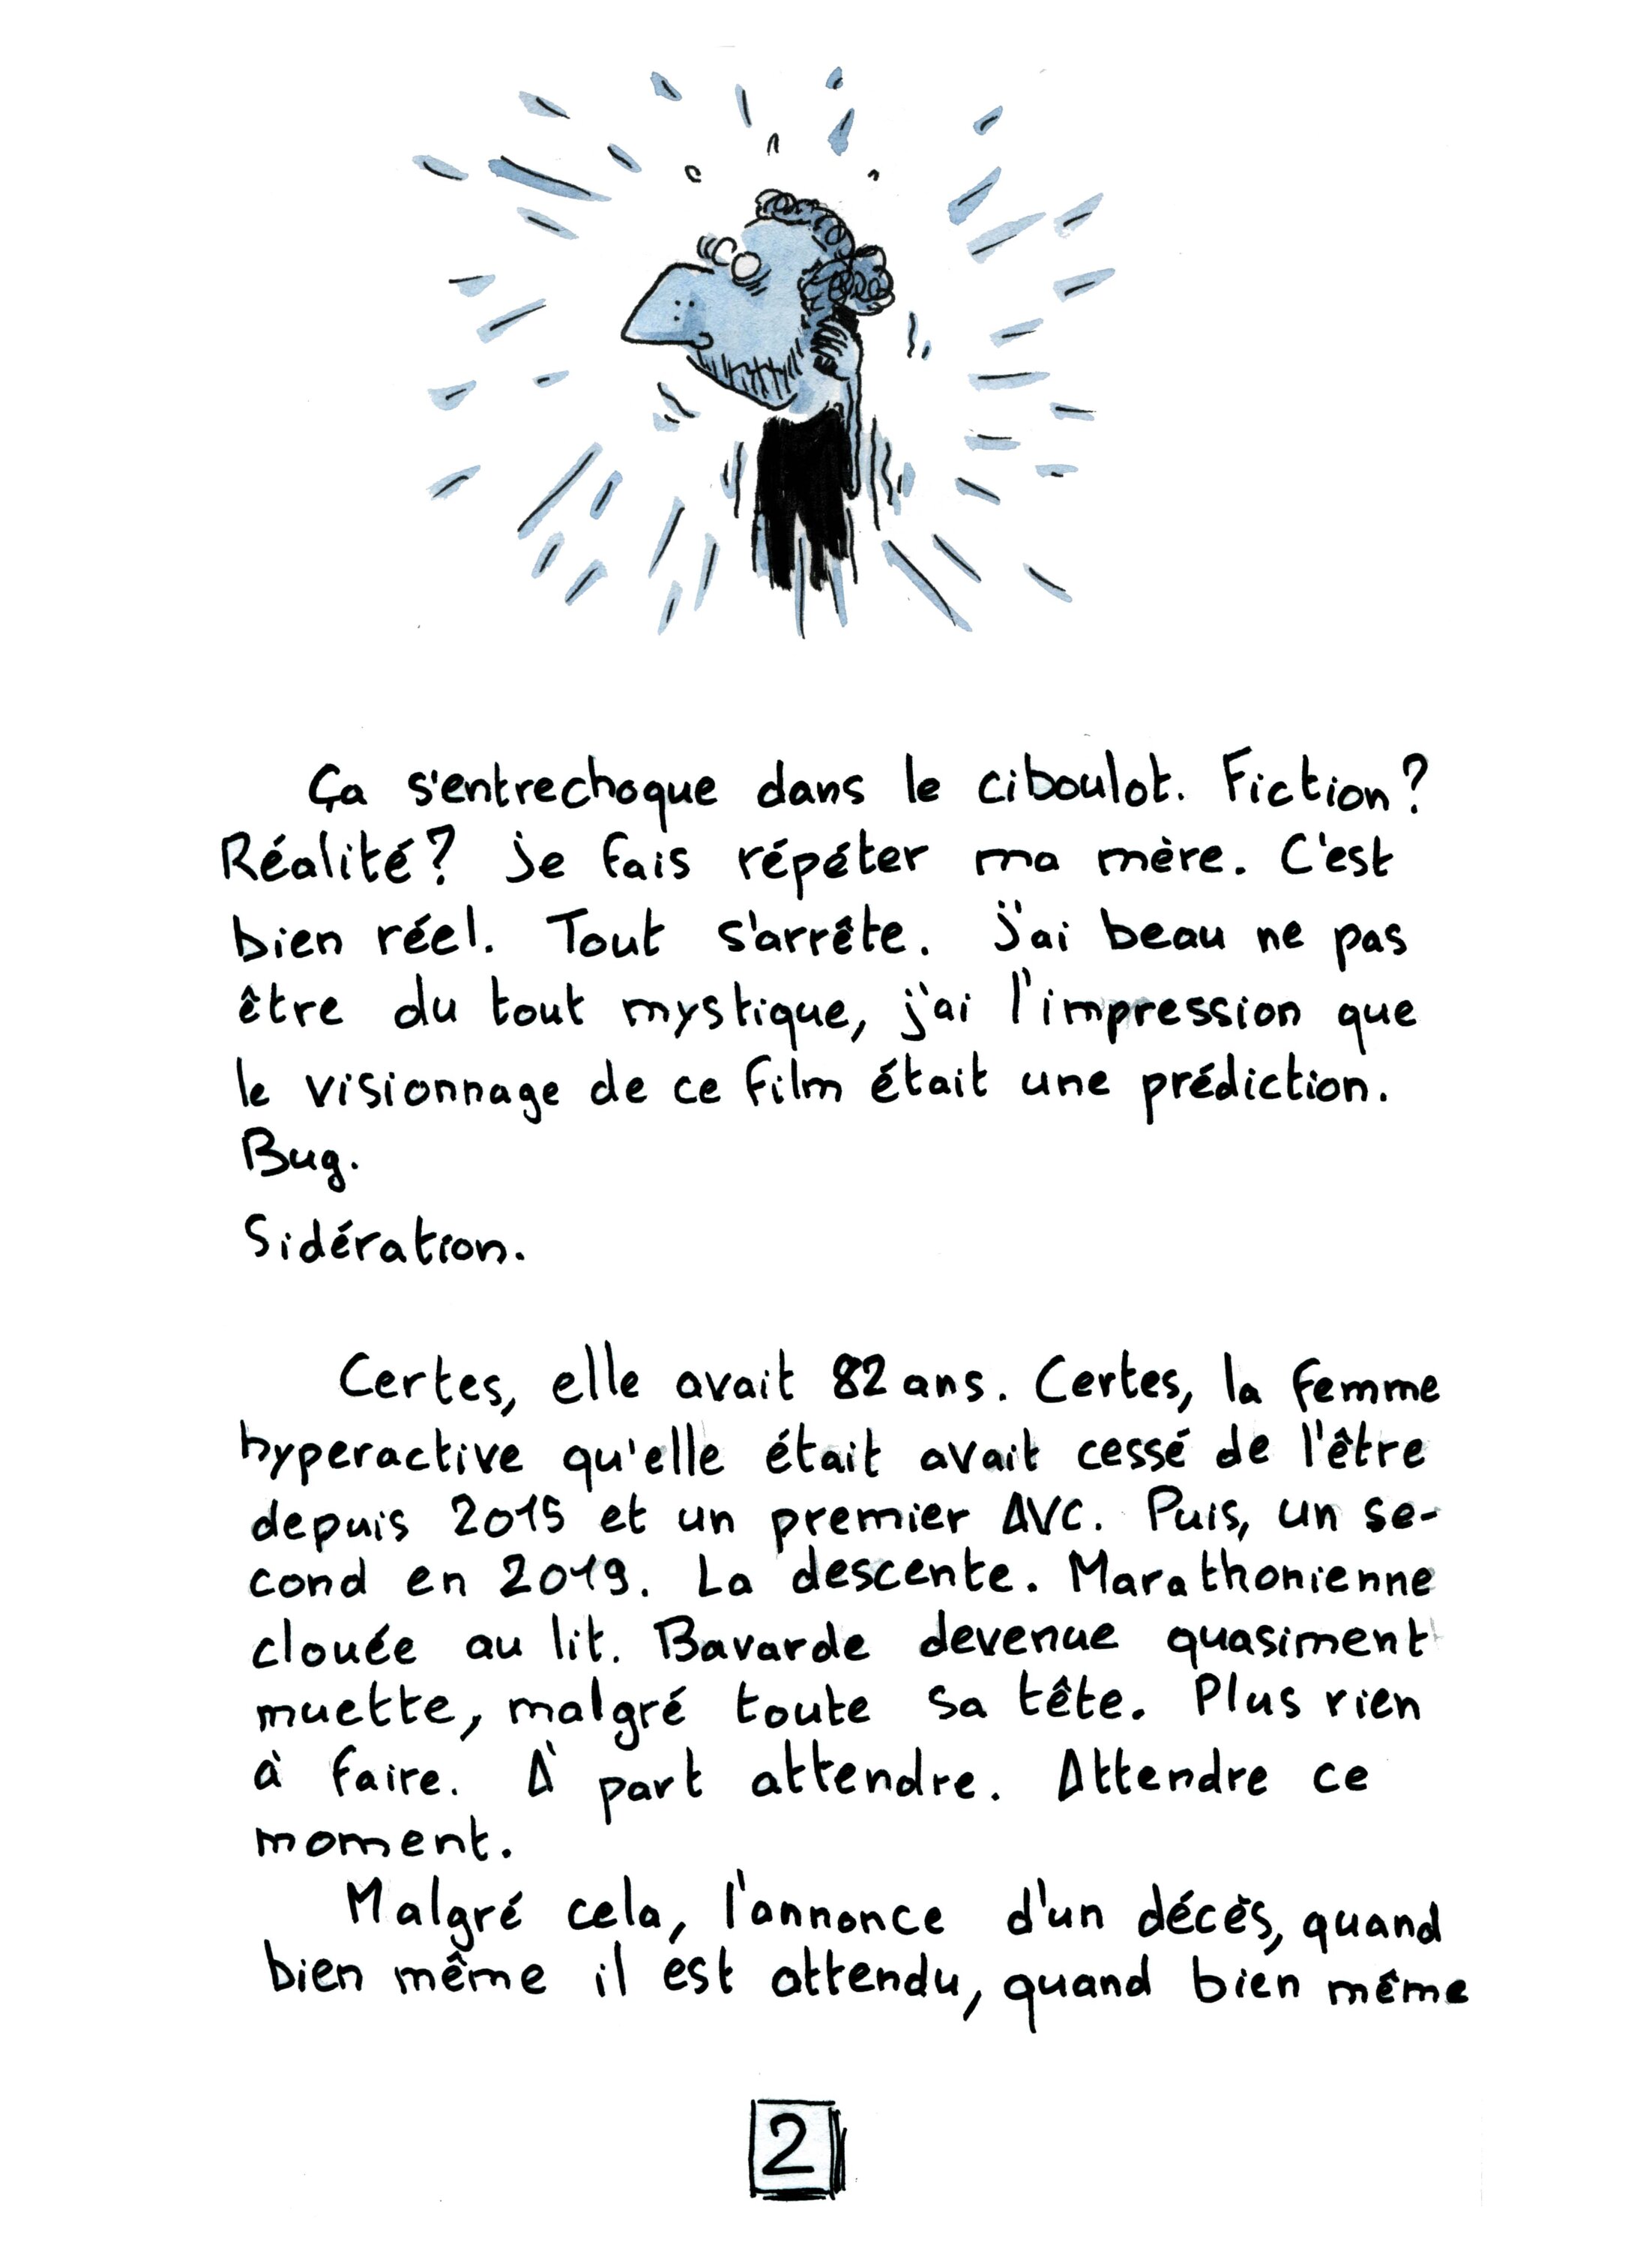 Ça s'entrechoque dans le ciboulot. Fiction?
Réalité? Je fais répéter ma mère. C'est
bien réel. Tout s'arrête. J'ai beau ne pas
être du tout mystique, j'ai l'impression que
le visionnage de ce film était une prédiction.
Bug.
Sidération.
Certes, elle avait 82 ans. Certes, la femme
hyperactive qu'elle était avait cessé de l'être
depuis 2015 et un premier AVC. Puis, un se-
cond en 2019. La descente. Marathonienne
clouée au lit. Bavarde devenue quasiment
muette, malgré toute sa tête. Plus rien
à faire. À part attendre. Attendre ce
moment.
Malgré cela, l'annonce d'un décès, quand
bien même il est attendu, quand bien même
2